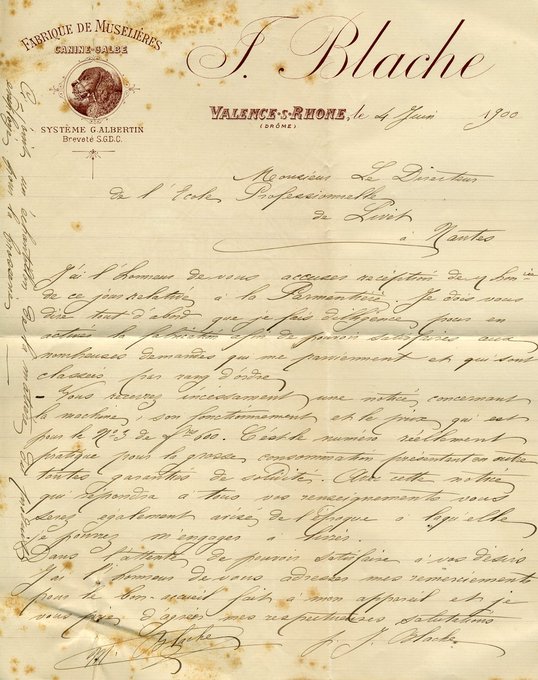 FABRIQUE DE MUSELIÈRES
CANINE-GALBE
SYSTÈME G. ALBERTIN
Breveté S.G.D.G.
J. Blache
VALENCE-S-RHONE, le 4 Juin 1900
(DRÔME)
Monsieur Le Directeur
de l'Ecole Professionnelle
de Livet
à Nantes
J'ai l'honneur de vous accuser réception de
de ce jour relative à la Parmentière. Je dois vous
dire tout d'abord que je fais diligence pour en
activer la fabrication afin de pouvoir satisfaire aux
nombreuses demandes qui me parviennent et qui sont
classées par rang d'ordre
Vous recevrez incessament une notice concernant
la machine, son fonctionnement et le prix qui est
pour le No 3 de 600. C'est le numéro réellement
pratique pour la grosse consommation présentant en outre
toutes garanties de solidité. Avec cette notice
qui répondra à tous vos renseignements vous
serez également avisé de l'Epoque à laquelle
je pourrez m'engager à livrer.
Dans l'attente de pouvoir satisfaire à vos désirs
J'ai l'honneur de vous adresser mes remerciements
pour le bon accueil fait à mon appareil et je
vous prie d'agréer mes respectueuses salutations
J. Blache